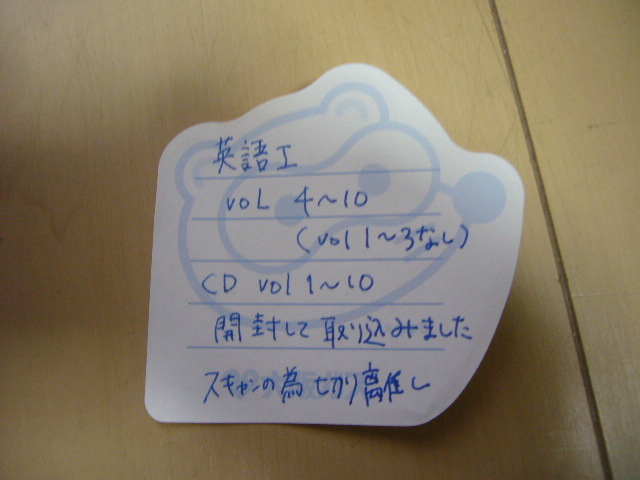 英語I
vol 4〜10
(vol 1〜3なし)
CD vol 1〜10
開封して取り込みました
スキャンの為 切り離し